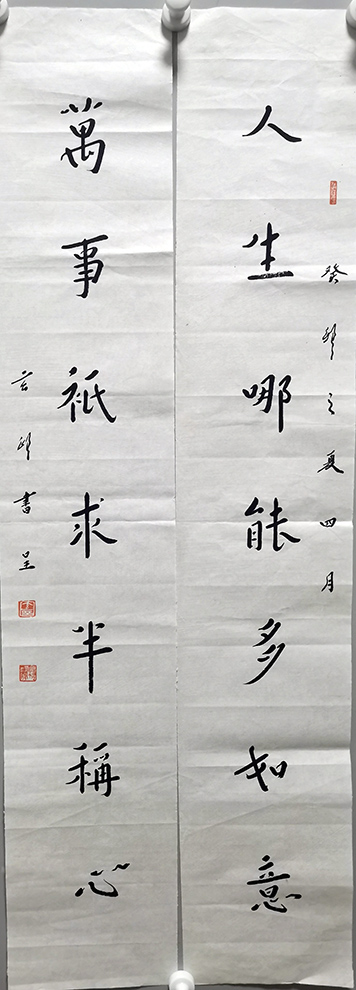 癸卯之夏四月
人生哪能多如意
萬事祇求半稱心
書呈